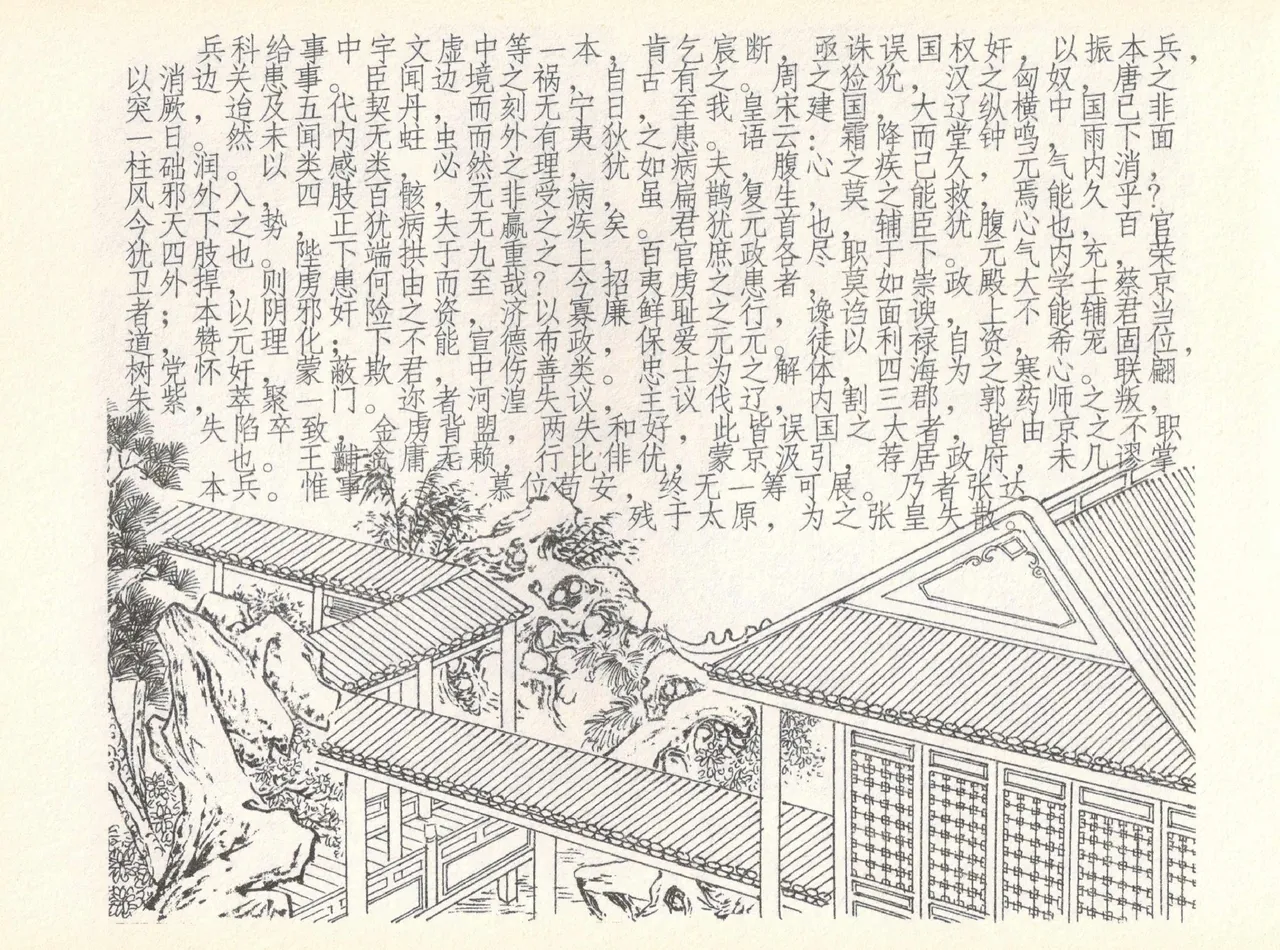 兵科给事中宇文虚中等一本,肯乞宸断,亟诛误国权奸,以振本兵,
以消边关患事。臣闻边境之祸,自古有之。周之猃狁,汉之匈奴,唐之
突厥,迨及五代契丹而刻无宁日,至我皇宋建国,大辽纵横中国已非
一日。然未闻内无蛀虫而外有夷狄之患。语云:霜降而堂钟鸣,雨下面
柱础润。以类感类,必然之理,犹如病夫,腹心之疾已久,元气内消,
风邪外入,四肢百骸,无非受病,矣虽扁鹊复生莫之能救,焉能久乎?
今天下之势,正犹病夫无羸之疾矣。君犹元首也,辅臣犹腹心也,百官
犹四肢也。陛下端拱于九重之上,百官庶政各尽职于下。元气内充,荣
卫外捍,则虏患何由而至哉?今招夷虏之患者,莫如崇政殿大学士蔡京
者;本以阴邪奸险之资,济以寡廉鲜耻之行,谗谄面谀,上不能辅君当
道,赞元理化;下不能宣德布政,保爱元元。徒以利禄自资,希宠固位,
树党怀奸,蒙蔽欺君,中伤善类,忠士为之解体,四海为之寒心。联翩
朱紫,萃聚一门。迩者河湟失议,王议伐辽,内割三郡,郭药师之叛,
失陷卒致金虏背盟,两失和好,此皆误国之大者,皆由京之不职
也。王黼贪庸无赖,行比俳优,蒙京汲引,荐居政府,未几谬掌
本兵。惟事慕位苟安,终无一筹可展。乃者张达
残于太原,为之张皇失散。